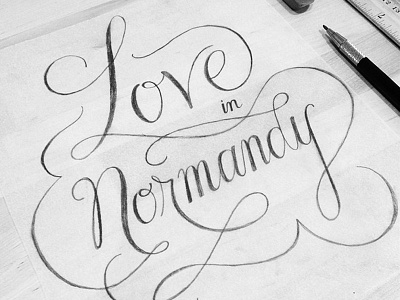 Love
in
Normandy